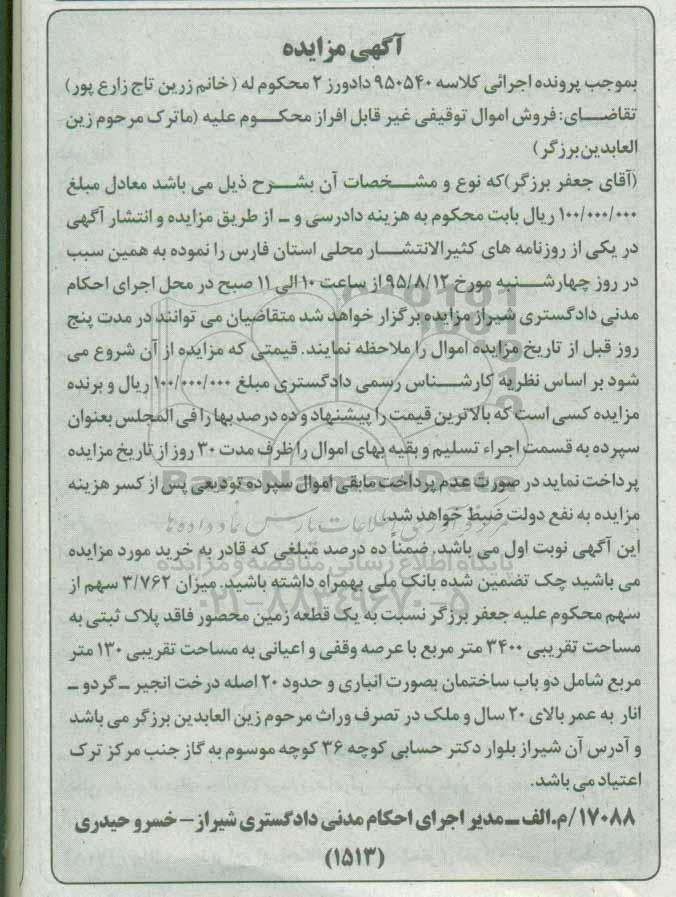 آگهی مزایده
بموجب پرونده اجرائی کلاسه ۹۵۰۵۴۰ دادورز ۲ محکوم له (خانم زرین تاج زارع پور)
تقاضای: فروش اموال توقیفی غیر قابل افراز محکوم علیه (ماترک مرحوم زین
العابدین برزگر)
(آقای جعفر برزگر)که نوع و مشخصات آن بشرح ذیل می باشد معادل مبلغ
۱۰۰/۰۰۰/۰۰۰ ریال بابت محکوم به هزینه دادرسی و ـ از طریق مزایده و انتشار آگهی
در یکی از روزنامه های کثیرالانتشار محلی استان فارس را نموده به همین سبب
در روز چهارشنبه مورخ ۹۵/۸/۱۲ از ساعت ۱۰ الی ۱۱ صبح در محل اجرای احکام
مدنی دادگستری شیراز مزایده برگزار خواهد شد متقاضیان می توانند در مدت پنج
روز قبل از تاریخ مزایده اموال را ملاحظه نمایند. قیمتی که مزایده از آن شروع می
شود بر اساس نظریه کارشناس رسمی دادگستری مبلغ ۱۰۰/۰۰۰/۰۰۰ ریال و برنده
مزایده کسی است که بالاترین قیمت را پیشنهاد و ده درصد بها را فی المجلس بعنوان
سپرده به قسمت اجراء تسلیم و بقیه بهای اموال را ظرف مدت ۳۰ روز از تاریخ مزایده
پرداخت نماید در صورت عدم پرداخت مابقی اموال سپرده تودیعی پس از کسر هزینه
مزایده به نفع دولت ضبط خواهد شد.
این آگهی نوبت اول می باشد. ضمناً ده درصد مبلغی که قادر به خرید مورد مزایده
می باشید چک تضمین شده بانک ملی بهمراه داشته باشید. میزان ۳/۷۶۲ سهم از
سهم محکوم علیه جعفر برزگر نسبت به یک قطعه زمین محصور فاقد پلاک ثبتی به
مساحت تقریبی ۳۴۰۰ متر مربع با عرصه وقفی و اعیانی به مساحت تقریبی ۱۳۰ متر
مربع شامل دو باب ساختمان بصورت انباری و حدود ۲۰ اصله درخت انجیر ـ گردو ـ
انار به عمر بالای ۲۰ سال و ملک در تصرف وراث مرحوم زین العابدین برزگر می باشد
و آدرس آن شیراز بلوار دکتر حسابی کوچه ۳۶ کوچه موسوم به گاز جنب مرکز ترک
اعتیاد می باشد.
۱۷۰۸۸/م.الف ـ مدیر اجرای احکام مدنی دادگستری شیراز – خسرو حیدری
(۱۵۱۳)
ParsNamadData
پایگاه اطلاع رسانی مناقصه و مزایده
۰۲۱-۸۸۳۴۹۶۷۰-۵